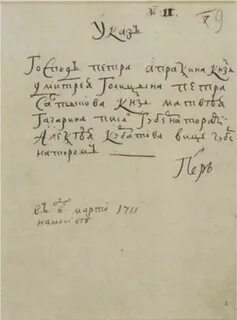 № II.
79
Указъ
Господъ петра апраѯина Кнзѧ
дмитрея Голицына петра
Салтыкова Кнзѧ матвѣѧ
Гагарина писа Губернаторамі
Алеѯѣѧ Курбатова вице губе
наторомъ
Петръ
въ марті 1711